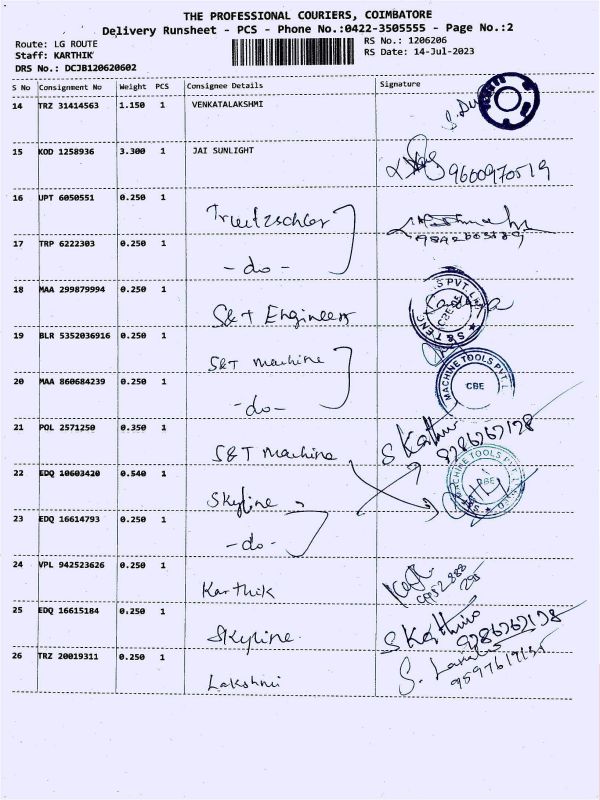 THE PROFESSIONAL COURIERS, COIMBATORE
Delivery Runsheet - PCS - Phone No.:0422-3505555 - Page No.:2
Route: LG ROUTE RS No.: 1206206
Staff: KARTHIK RS Date: 14-Jul-2023
DRS No.: DCJB120620602
S No Consignment No Weight PCS Consignee Details Signature
14 TRZ 31414563 1.150 1 VENKATALAKSHMI
15 KOD 1258936 3.300 1 JAI SUNLIGHT
9600970519
16 UPT 6050551 0.250 1 Truetzschler
17 TRP 6222303 0.250 1
- do -
18 MAA 299879994 0.250 1
S&T Engineers
19 BLR 5352036916 0.250 1 S&T machine
20 MAA 860684239 0.250 1 MACHINE TOOLS PVT. CBE
- do -
21 POL 2571250 0.350 1 S Karthik
S&T Machine
22 EDQ 10603420 0.540 1 MACHINE TOOLS PVT. CBE
Skyline
23 EDQ 16614793 0.250 1
- do -
24 VPL 942523626 0.250 1
Karthik
25 EDQ 16615184 0.250 1
Skyline S Karthik
26 TRZ 20019311 0.250 1
Lakshmi